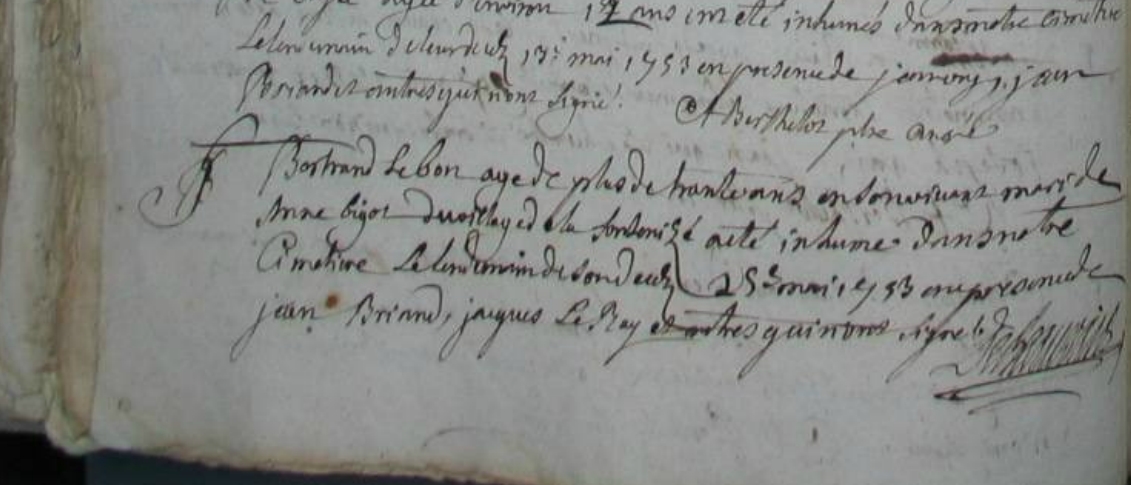 agée d'environ 12 ans ont eté inhumés dans notre cimetire
Le lendemain de leur decez 13e mai 1753 en presence de jan
Briand et autres qui n'ont signé. Berthelot ptre
Bertrand Lebon age de plus de trante ans en son vivant mari de
Anne bigot du village de la a eté inhumé dans notre
Cimetiere Le lendemain de son decez 25e mai 1753 en presence de
jean Briand, jacques Le Ray et autres qui n'ont signé